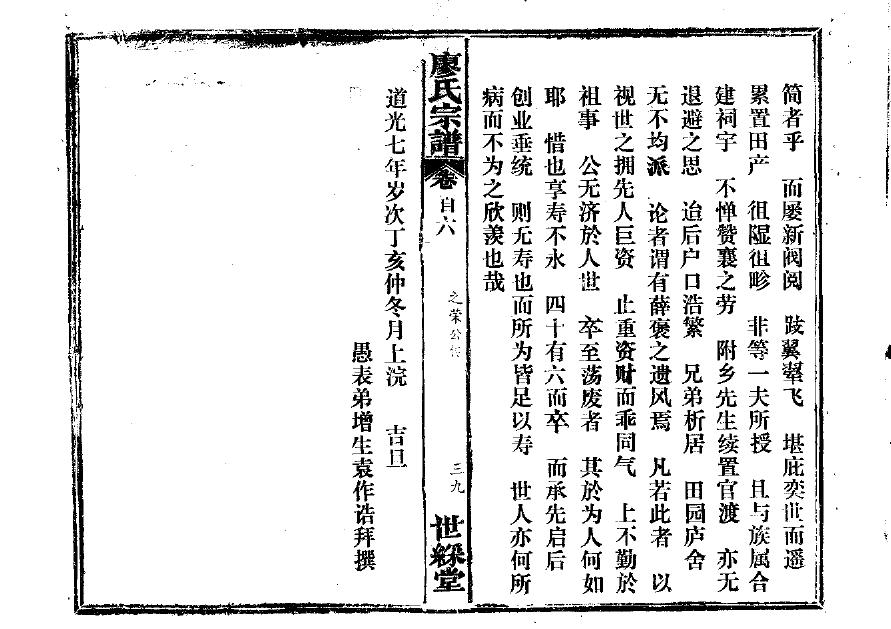 简者乎 而屡新阀阅 跂翼翚飞 堪庇奕世而遥
累置田产 徂隰徂畛 非等一夫所授 且与族属合
建祠宇 不惮赞襄之劳 附乡先生续置官渡 亦无
退避之思 迨后户口浩繁 兄弟析居 田园庐舍
无不均派 论者谓有薛褒之遗风焉 凡若此者 以
视世之拥先人巨资 止重资财而乖同气 上不勤於
祖事 公无济於人世 卒至荡废者 其於为人何如
耶 惜也享寿不永 四十有六而卒 而承先启后
创业垂统 则无寿也而所为皆足以寿 世人亦何所
病而不为之欣羡也哉
廖氏宗譜
卷
自六
之荣公
三九
世綵堂
道光七年岁次丁亥仲冬月上浣 吉旦
愚表弟增生袁作诰拜撰